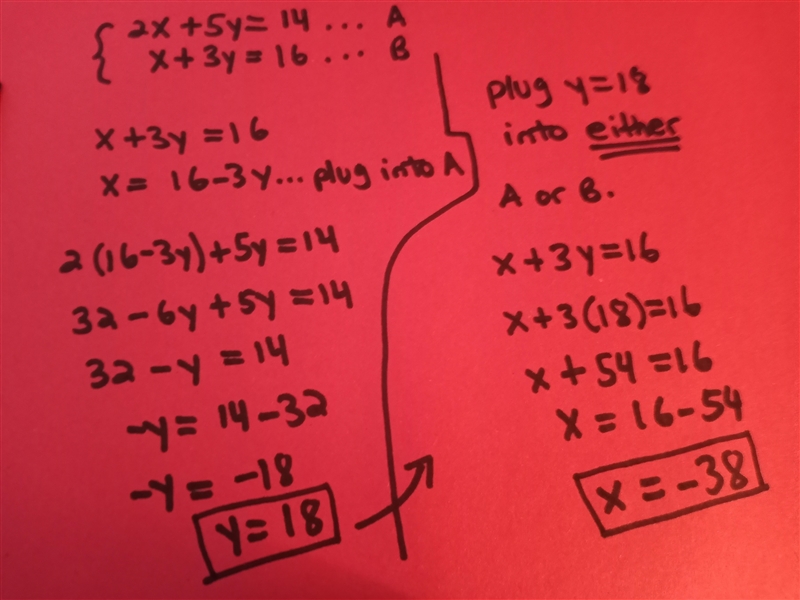 2x + 5y = 14 ... A
x + 3y = 16 ... B
x + 3y = 16
x = 16 - 3y ... plug into A
2(16 - 3y) + 5y = 14
32 - 6y + 5y = 14
32 - y = 14
-y = 14 - 32
-y = -18
y = 18
plug y = 18
into either
A or B.
x + 3y = 16
x + 3(18) = 16
x + 54 = 16
x = 16 - 54
x = -38